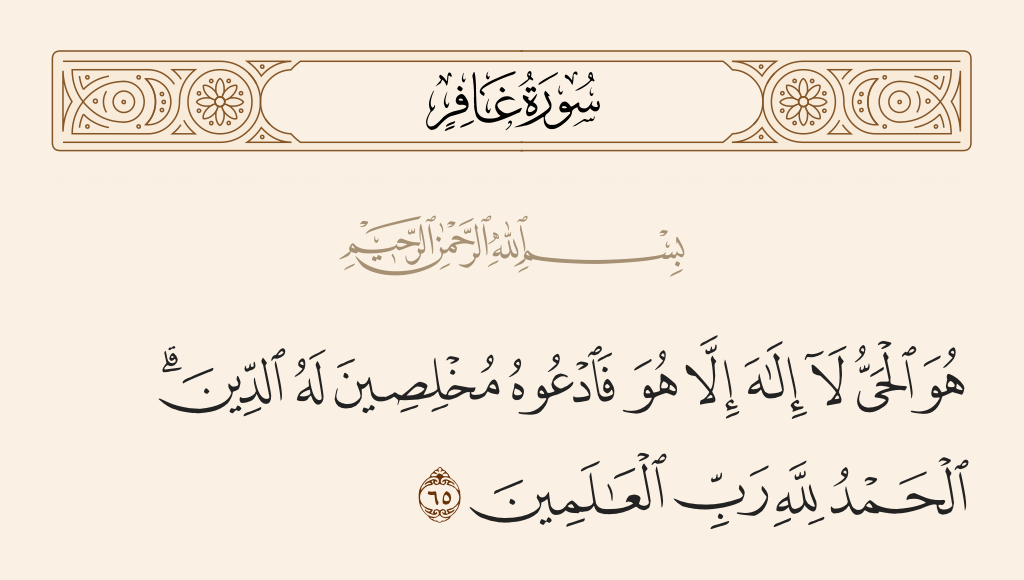 سُورَةُ غَافِرٍ
بِسْمِ ٱللَّهِ ٱلرَّحْمَٰنِ ٱلرَّحِيمِ
هُوَ ٱلْحَىُّ لَآ إِلَٰهَ إِلَّا هُوَ فَٱدْعُوهُ مُخْلِصِينَ لَهُ ٱلدِّينَ ۗ
ٱلْحَمْدُ لِلَّهِ رَبِّ ٱلْعَٰلَمِينَ ٦٥